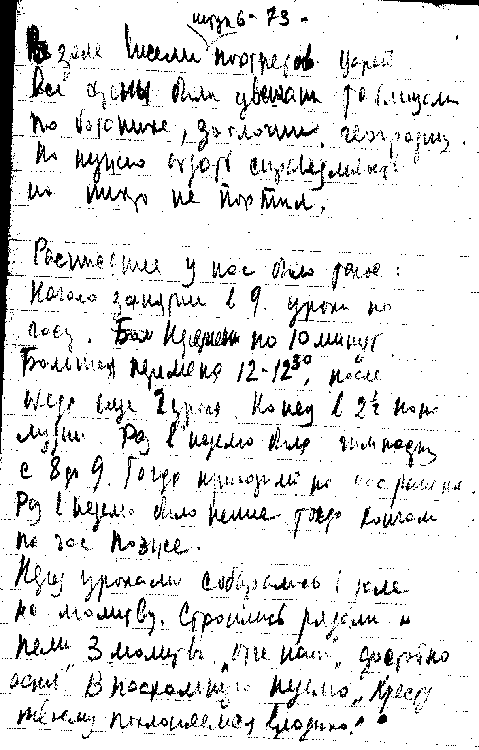 штук 6 - 73 -
В зале висели портреты царей
Все стены были увешаны таблицами
по ботанике, зоологии, географии.
Но нужно отдать справедливость
но никто не портил.
Расписание у нас было такое:
Начало занятий в 9. уроки по
часу. Перемены по 10 минут.
Большая перемена 12-12³⁰, после
чего еще 2 урока. Конец в 2½ попо
лудни. Раз в неделю была гимнастика
с 8 до 9. Тогда приходили на
Раз в неделю было пение тогда кончали
на час позже.
Перед уроками собирались в зале
на молитву. Строились рядами и
пели 3 молитвы „Отче наш", достойно
есть" В пасхальную неделю „Кресту
твоему поклоняемся владыко."